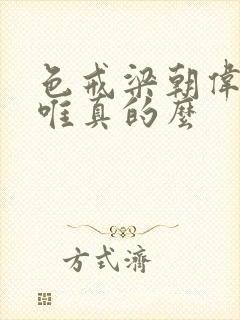 色戒梁朝偉
唯真的麼
方式濟